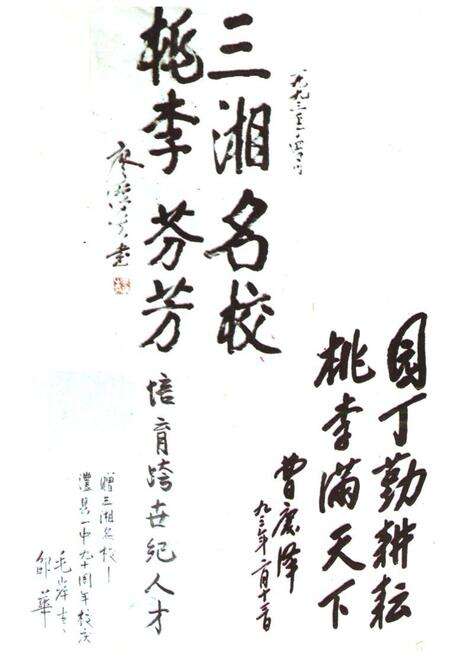 三湘名校
桃李芬芳
廖汉生书
园丁勤耕耘
桃李满天下
曹庆泽
九三年二月十三日
培育跨世纪人才
赠三湘名校—
澧县一中九十周年校庆
毛岸青、
邵華